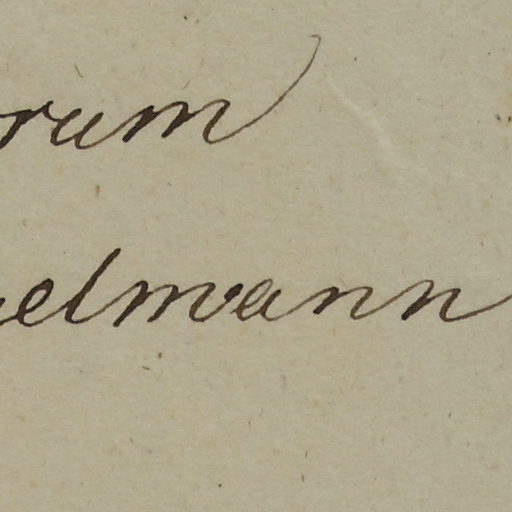 rum
elmann